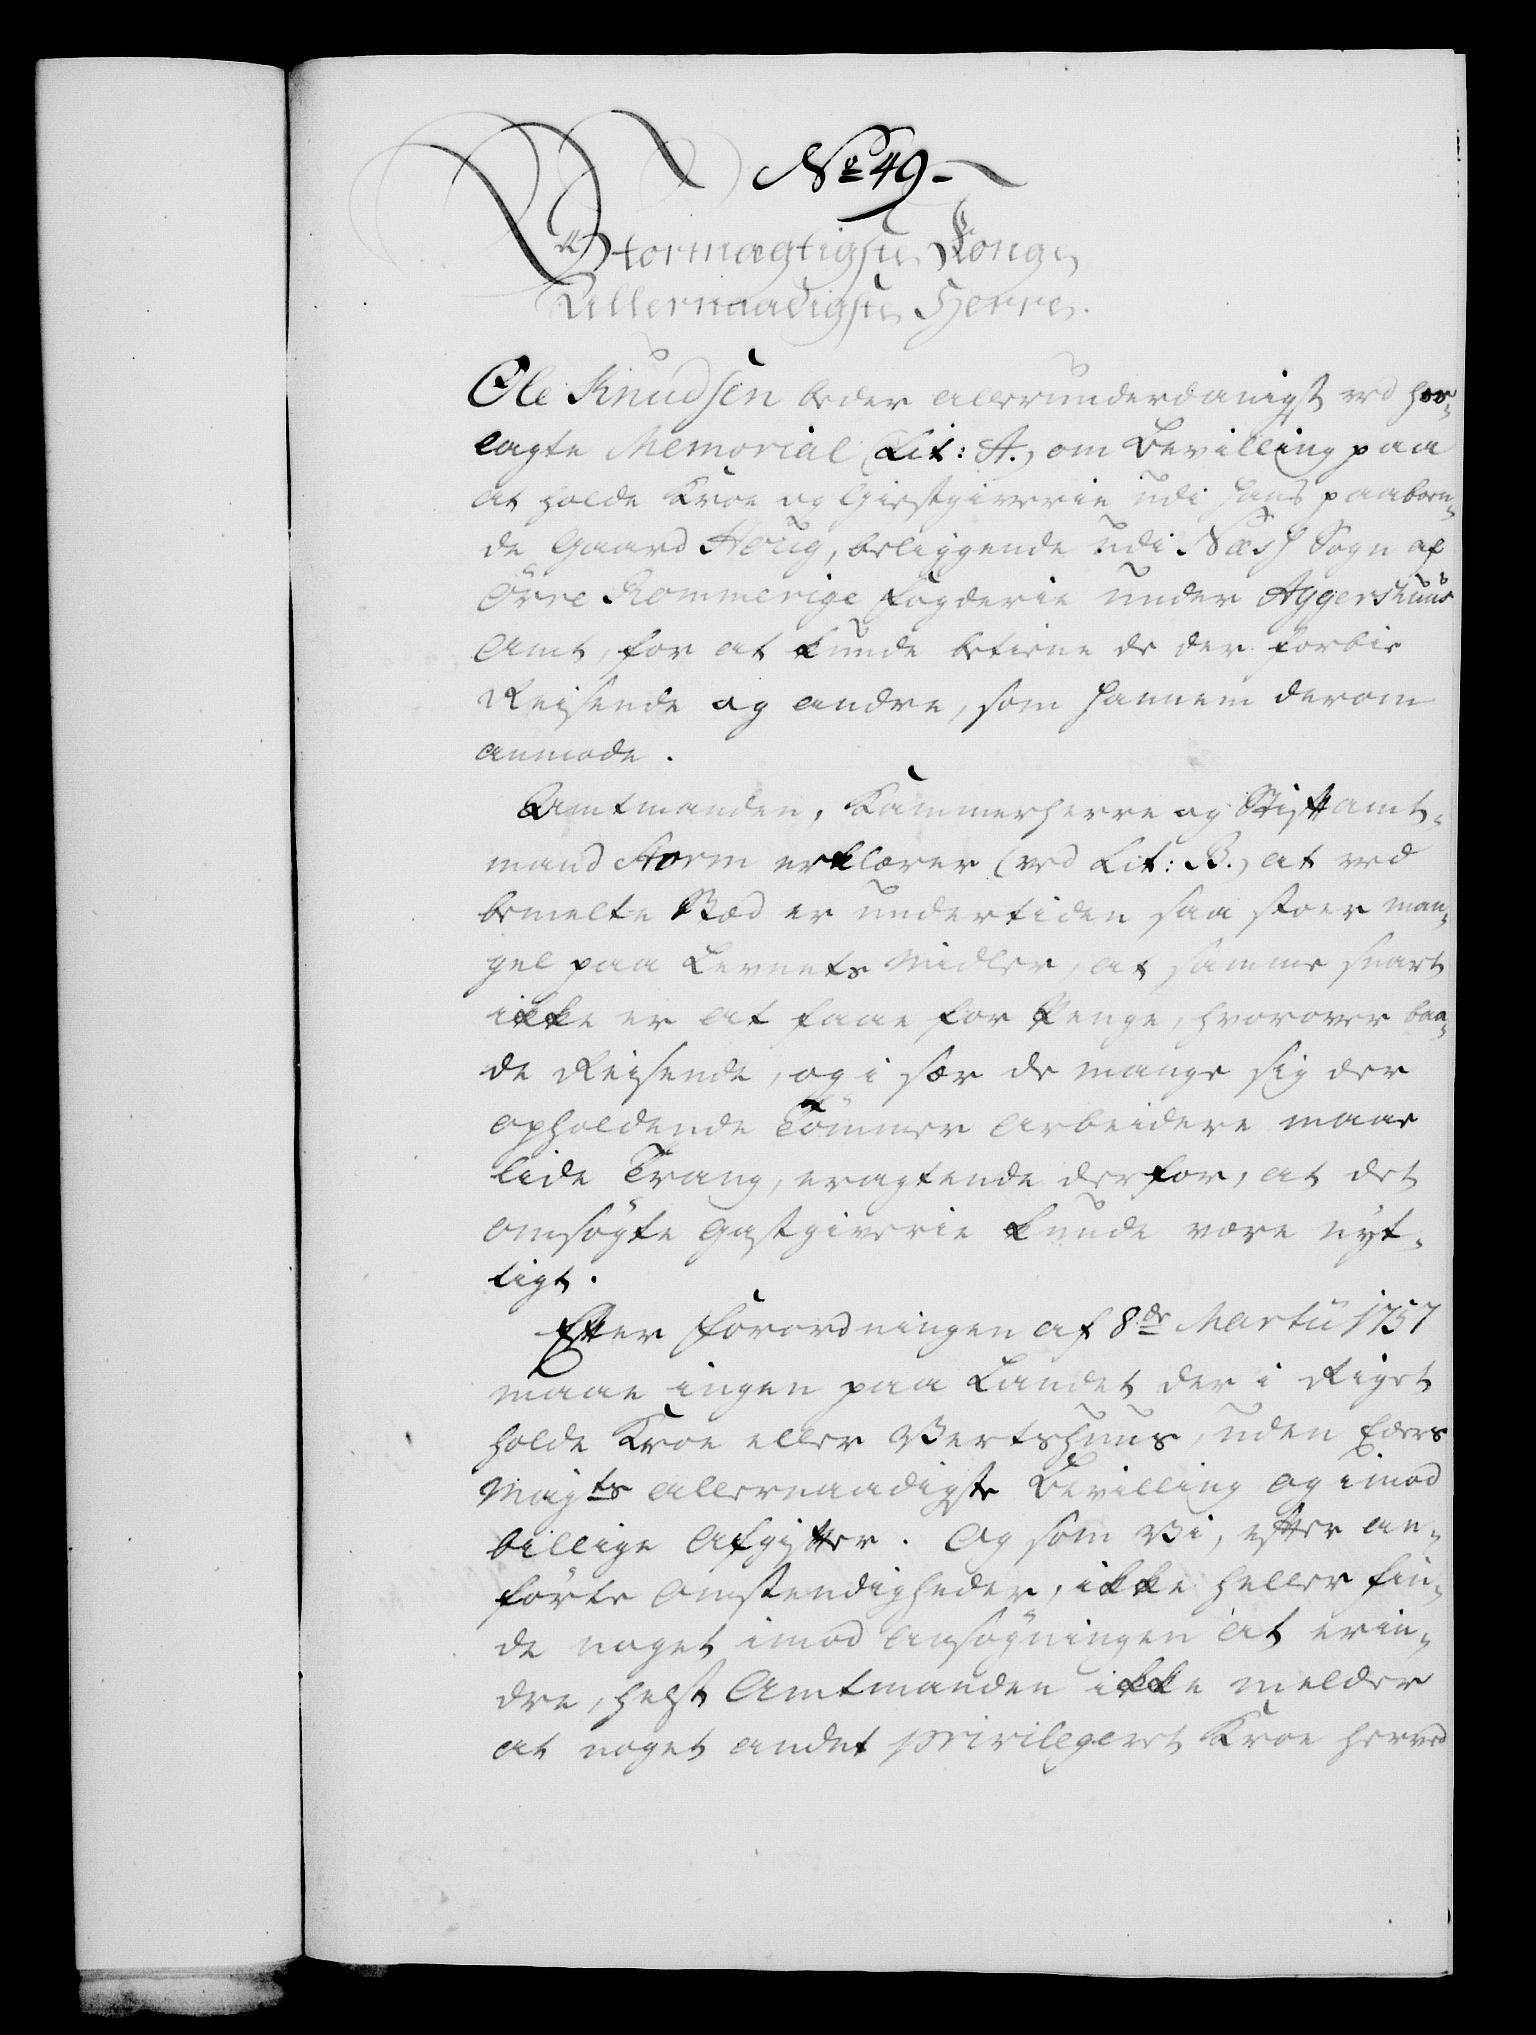 No 49.
Stormægtigste Konge
Allernaadigste Herre.
Ole Knudsen beder allerunderdanigst ved her-
lagte Memorial (Lit: A.) om Bevilling paa
at holde Kroe og Giestgiverie udi hans paaboen-
de Gaard Houg, beliggende udi Næss Sogn af
Övre Rommerige Fogderie under Aggershuus
Amt, for at kunde betiene de der forbie
Reisende og andre, som hannem derom
anmode.
Amtmanden, Kammerherre og Stiftamt-
mand Storm erklærer (ved Lit: B.) at ved
bemelte Stæd er undertiden saa stoer man-
gel paa Levnets Midler, at samme snart
ikke er at faae for Penge, hvorover baa-
de Reisende, og i sær de mange sig der
opholdende Tömmer Arbeidere maae
lide Trang, eragtende derfor, at det
omsögte Gastgiverie kunde være nyt-
tigt.
Efter Forordningen af 8de Martii 1757
maae ingen paa Landet der i Riget
holde Kroe eller Vertshuus, uden Eders
Mayts allernaadigste Bevilling og imod
billige Afgifter. Og som Vi, efter an-
förte Omstendigheder, ikke heller fin-
de noget imod Ansögningen at erin-
dre, helst Amtmanden ikke melder
at noget andet privilegeret Kroe herved